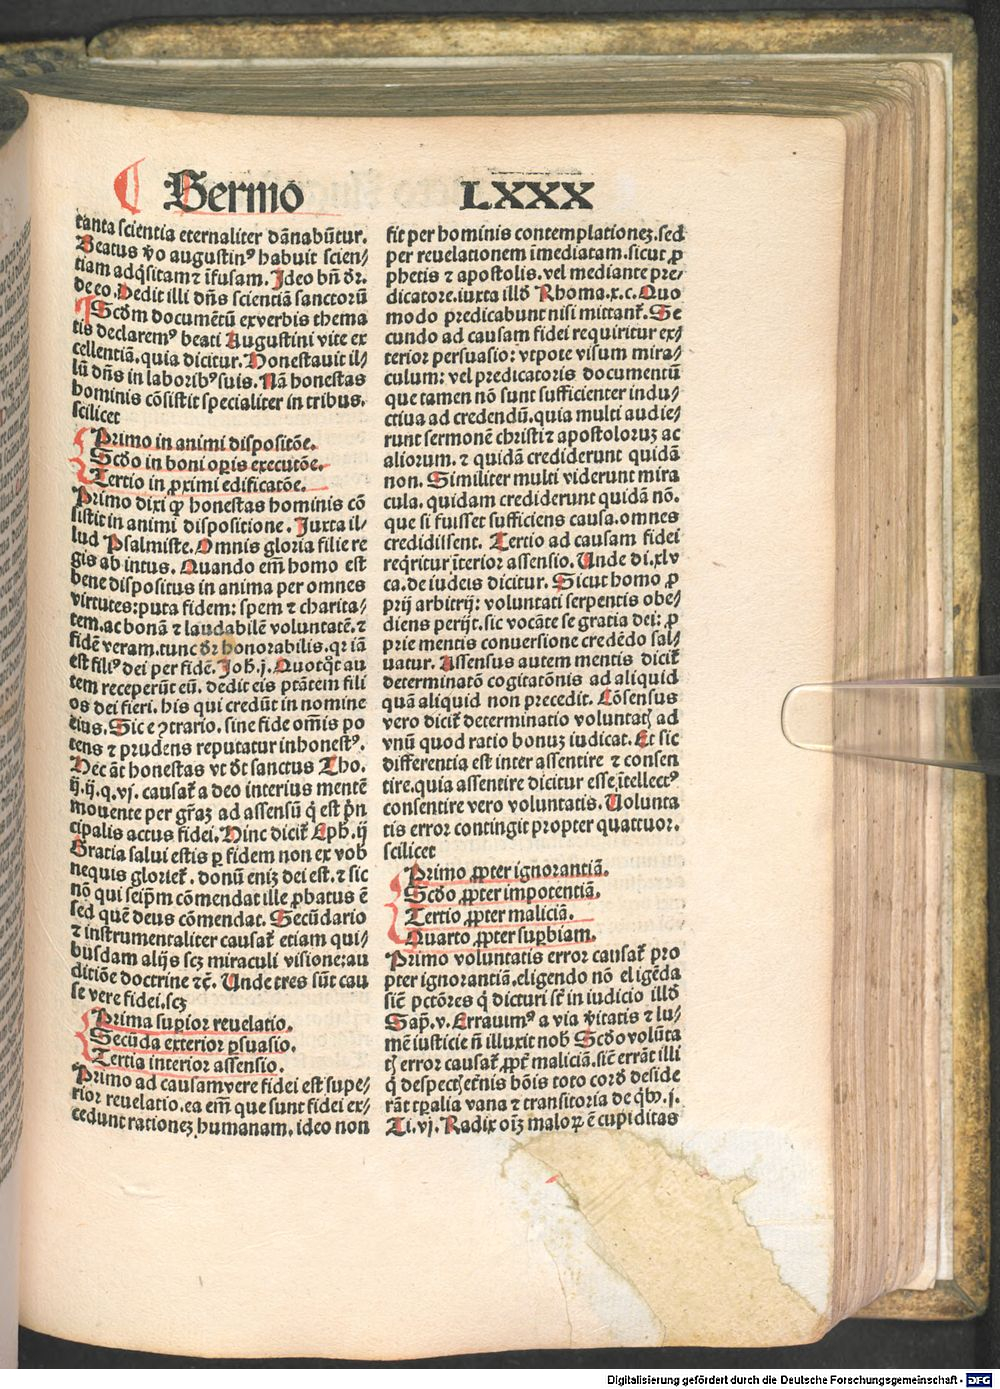 Sermo LXXX
tanta scientia eternaliter dãnabũtur.
Beatus ṽo augustinꝰ habuit scien⸗
tiam adq̃sitam ⁊ ĩfusam. Ideo bñ dr̃.
de eo. Dedit illi dñs scientiã sanctorũ
Scd̃m documẽtũ ex verbis thema
tis declaremꝰ beati Augustini vite ex
cellentiã. quia dicitur. Honestauit il⸗
lũ dñs in laboribꝰ suis. Nã honestas
hominis cõsistit specialiter in tribus.
scilicet
Primo in animi dispositõe.
Scd̃o in boni oꝑis executõe.
Tertio in ꝓximi edificatõe.
Primo dixi ꝙ honestas hominis cõ
sistit in animi dispositione. Iuxta il⸗
lud Psalmiste. Omnis gloria filie re
gis ab intus. Quando em̃ homo est
bene dispositus in anima per omnes
virtutes: puta fidem: spem ⁊ charita⸗
tem. ac bonã ⁊ laudabilẽ voluntatẽ. ⁊
fidẽ veram. tunc dr̃ honorabilis. qr iã
est filiꝰ dei per fidẽ. Joh̃. j. Quotq̃t au
tem receperũt eũ. dedit eis ptãtem fili
os dei fieri. his qui credũt in nomine
eius. Sic e ꝯtrario. sine fide om̃is po
tens ⁊ prudens reputatur inhonestꝰ.
Hec ãt honestas vt dr̃t sanctus Tho.
ij. ij. q. vj. causat̃ a deo interius mentẽ
mouente per gr̃az ad assensũ q̃ est pr̃in
cipalis actus fidei. Hinc dicit̃ Eph. ij
Gratia salui estis ꝑ fidem non ex vob
nequis gloriet̃. donũ eniz dei est. ⁊ sic
nõ qui seip̃m cõmendat ille ꝓbatus ẽ
sed quẽ deus cõmendat. Secũdario
⁊ instrumentaliter causat̃ etiam qui⸗
busdam alijs scz miraculi visione: au
ditiõe doctrine ⁊c̃. Unde tres sũt cau
se vere fidei. scz
Prima suꝑior reuelatio.
Secũda exterior ꝑsuasio.
Tertia interior assensio.
Primo ad causam vere fidei est supe⸗
rior reuelatio. ea em̃ que sunt fidei ex⸗
cedunt rationez humanam. ideo non
fit per hominis contemplationez. sed
per reuelationem ĩmediatam. sicut ꝓ
phetis ⁊ apostolis. vel mediante pre⸗
dicatore. iuxta illd̃ Rhoma. x. c. Quo
modo predicabunt nisi mittant̃. Se
cundo ad causam fidei requiritur ex⸗
terior persuasio: vtpote visum mira⸗
culum: vel predicatoris documentũ
que tamen nõ sunt sufficienter indu⸗
ctiua ad credendũ. quia multi audie⸗
runt sermonẽ christi ⁊ apostoloruz ac
aliorum. ⁊ quidã crediderunt quidã
non. Similiter multi viderunt mira
cula. quidam crediderunt quidã nõ.
que si fuisset sufficiens causa. omnes
credidissent. Tertio ad causam fidei
req̃ritur ĩterior assensio. Unde di. xlv
ca. de iudeis dicitur. Sicut homo ꝓ
prij arbitrij: voluntati serpentis obe⸗
diens perijt. sic vocãte se gratia dei: ꝓ
prie mentis conuersione credẽdo sal⸗
uatur. Assensus autem mentis dicit̃
determinatõ cogitatõnis ad aliquid
quã aliquid non precedit. Cõsensus
vero dicit̃ determinatio voluntatꝭ ad
vnũ quod ratio bonuz iudicat. Et sic
differentia est inter assentire ⁊ consen
tire. quia assentire dicitur esse ĩtellectꝰ
consentire vero voluntatis. Uolunta
tis error contingit propter quattuor.
scilicet
Primo ꝓpter ignorantiã.
Scd̃o ꝓpter impotentiã.
Tertio ꝓpter maliciã.
Quarto ꝓpter suꝑbiam.
Primo voluntatis error causat̃ pro
pter ignorantiã. eligendo nõ eligẽda
sic̃ pctõres q̃ dicturi st̃ in iudicio illd̃
Sap̃. v. Errauimꝰ a via ṽitatis ⁊ lu⸗
mẽ iusticie ñ illuxit nob̃ Scd̃o volũta
tꝭ error causat̃ ꝓpt̃ maliciã. sic̃ errãt illi
q̃ despectꝭ et̃nis bõis toto cord̃ deside
rãt tꝑalia vana ⁊ transitoria de q̃bꝰ. j.
Ti. vj. Radix oĩz maloꝝ ẽ cupiditas
Digitalisierung gefördert durch die Deutsche Forschungsgemeinschaft - DFG